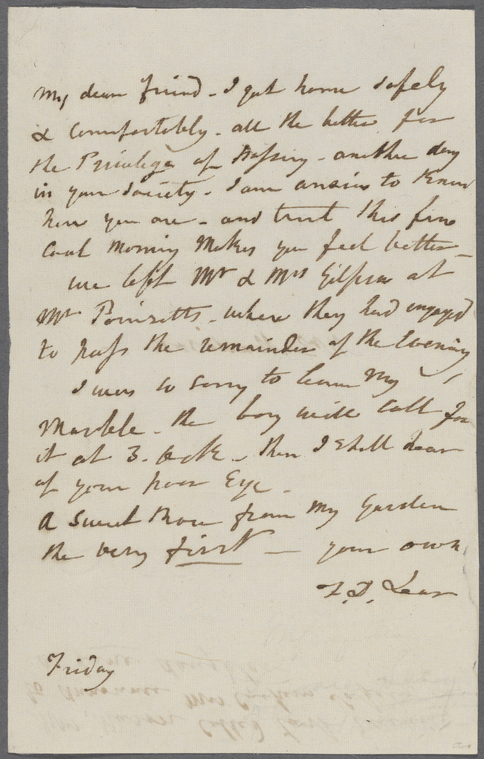 My dear friend - I got home safely
& Comfortably - all the better for
the Privilege of Passing - another day
in your Society - I am anxious to Know
how you are - and trust this fine
Cool Morning Makes you feel better -
we left Mr & Mrs Gilpin at
Mr Poinsetts - where they had engaged
to pass the remainder of the Evening
I was so sorry to leave My
Marble - the boy will Call for
it at 3. Oclk - then I shall hear
of your poor Eye -
A Sweet from My Garden
the very first - your own
Friday